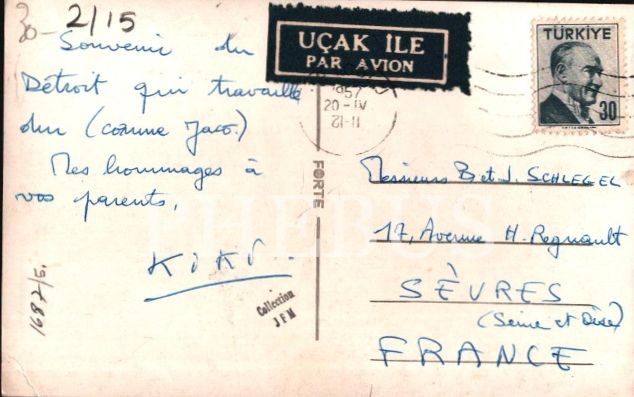 30-
2/15
UÇAK İLE
PAR AVION
TÜRKİYE
30
1957
20-IV
Souvenir du
Détroit qui travaille
dur (comme Jaco.)
Mes hommages à
vos parents,
KIKI.
1682/5.
Collection
J F M
FORTE
PHEBUS
Messieurs B et J. SCHLEGEL
17, Avenue H. Regnault
SÈVRES
(Seine et Oise)
FRANCE